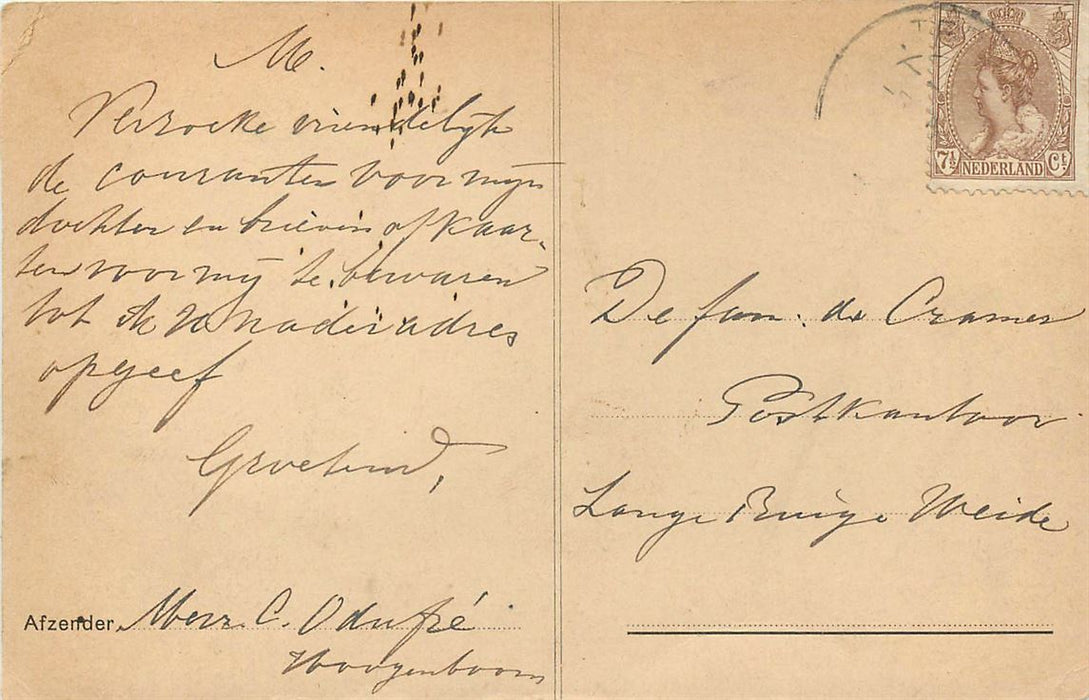 M.
Verzoeke vriendelijk
de couranten voor mijn
dochter en brieven of kaar-
ten voor mij te bewaren
tot ik U nader adres
opgeef
Groetend,
Afzender Mevr. C. Odufré
Hoogenboom
7½ NEDERLAND Ct
De fam. de Cramer
Postkantoor
Lange Ruige Weide